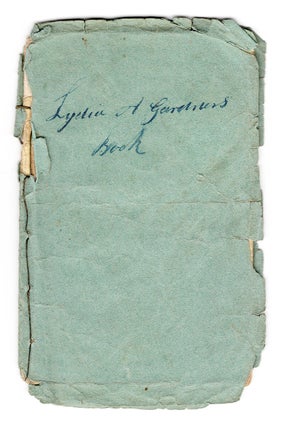 Lydia A Gardners
Book